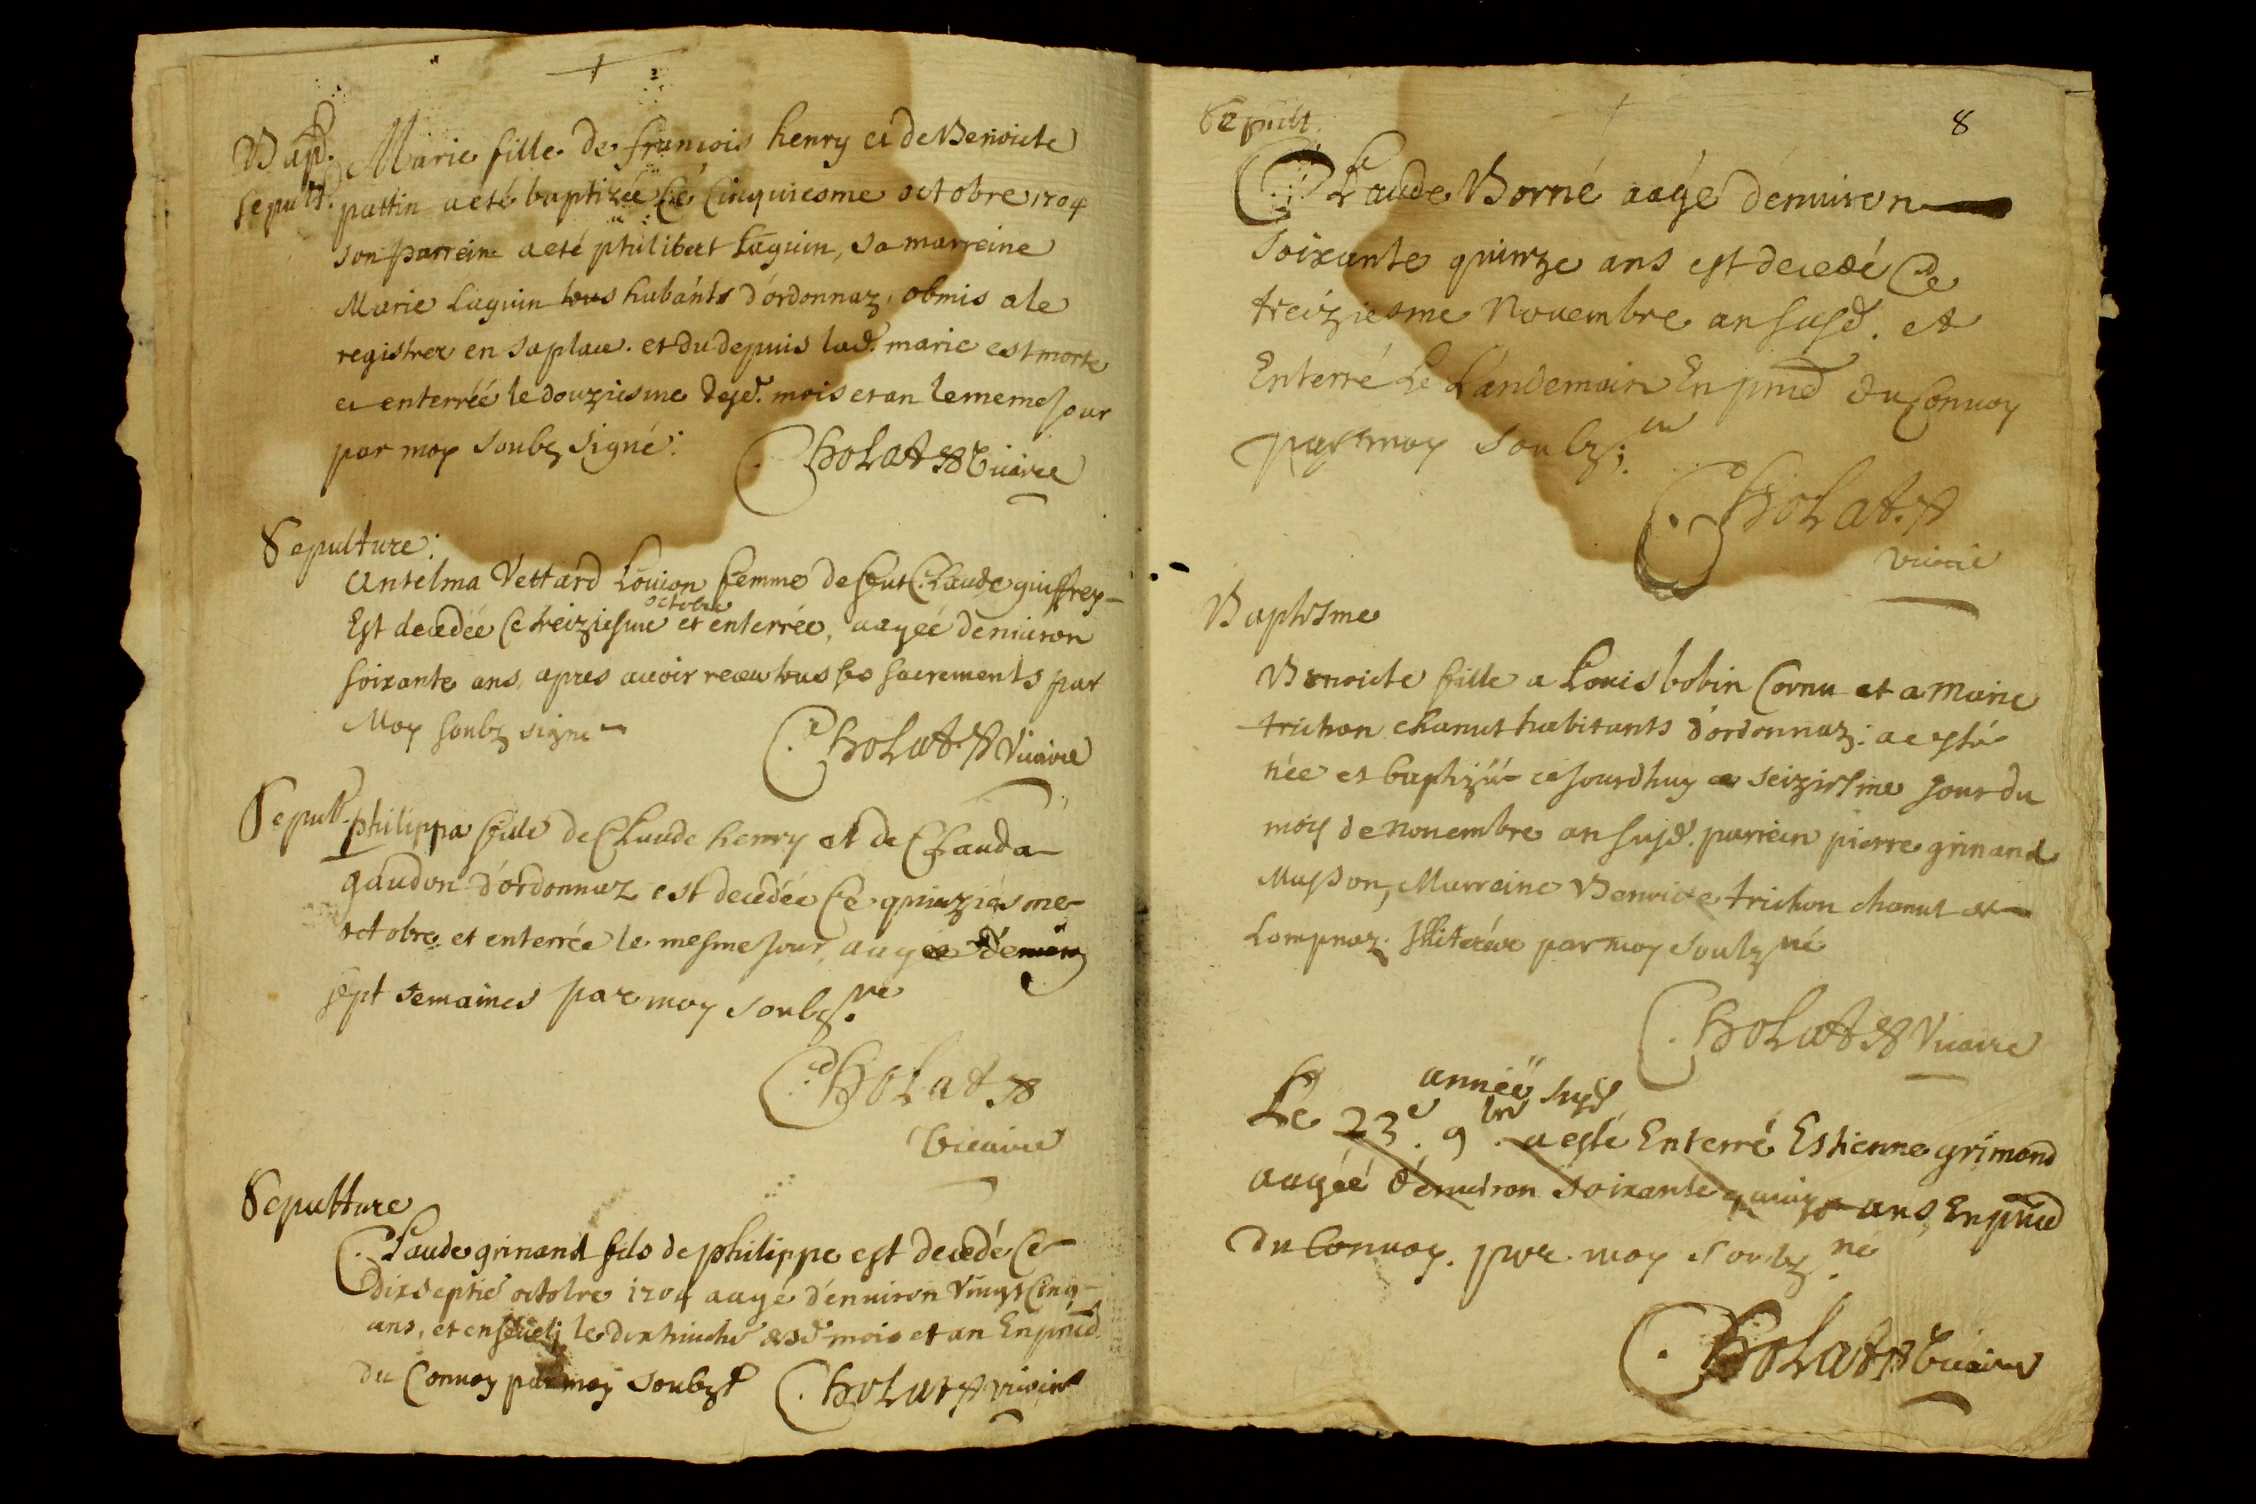 Bapt.
Sepult.
Marie fille de francois henry et de Benoicte
pattin a eté baptizée Ce Cinquiesme octobre 1704
son parrein a eté philibert Laguin, sa marreine
Marie Laguin tous habánts d'ordonnaz, obmis a le
registrer en sa place. et du depuis lad. marie est morte
et enterréé le douziesme desd. mois et an le meme jour
par moy soubz signé:
Cholat Vicaire
Sepulture:
Antelma Vettard Louion femme de feut Claude guiffrey
Est decedéé Ce treiziesme octobre et enterrée, aagéé denuiron
soixante ans, apres auoir receu tous ses sacrements par
Moy soubz signé
Cholat Vicaire
Sepult.
philippa fille de Claude henry et de Clauda
gaudon d'ordonnaz est decedée Ce quinziésme
octobre et enterrée le mesme jour, aagée
sept semaines par moy soubz.né
Cholat
Vicaire
Sepulture
Claude grinand fils de philippe est decedé Ce
dixseptie octobre 1704 aagé d'enuiron Vingt Cinq
ans, et enseuelj le dixhuictie desd mois et an En pnce
du Conuoy par moy soubz
Cholat vicaire
8
Sepult.
Claude Borné aagé dénuiron
soixante quinze ans est decedé Ce
treiziesme Nouembre an susd. et
Enterré Le L'andemain En pnce du Conuoy
par moy soubz.
Cholat
vicaire
Baptisme
Benoicte fille a Louis bobin Cornu et a Marie
trichon chanut habitants d'ordonnaz: a esté
née et baptizéé cejourdhuy ce seiziesme jour du
mois de nouembre an susd. parrein pierre grinand
Musson, Marreine Benoicte trichon chanut de
Lompnaz. par moy soubz né
Cholat Vicaire
année susd
Le 23e. 9bre. a esté Enterré Estienne grimond
aagéé d'énuiron soixante quinze ans, En pnce
du Conuoy. par moy soubz.né
Cholat Vicaire